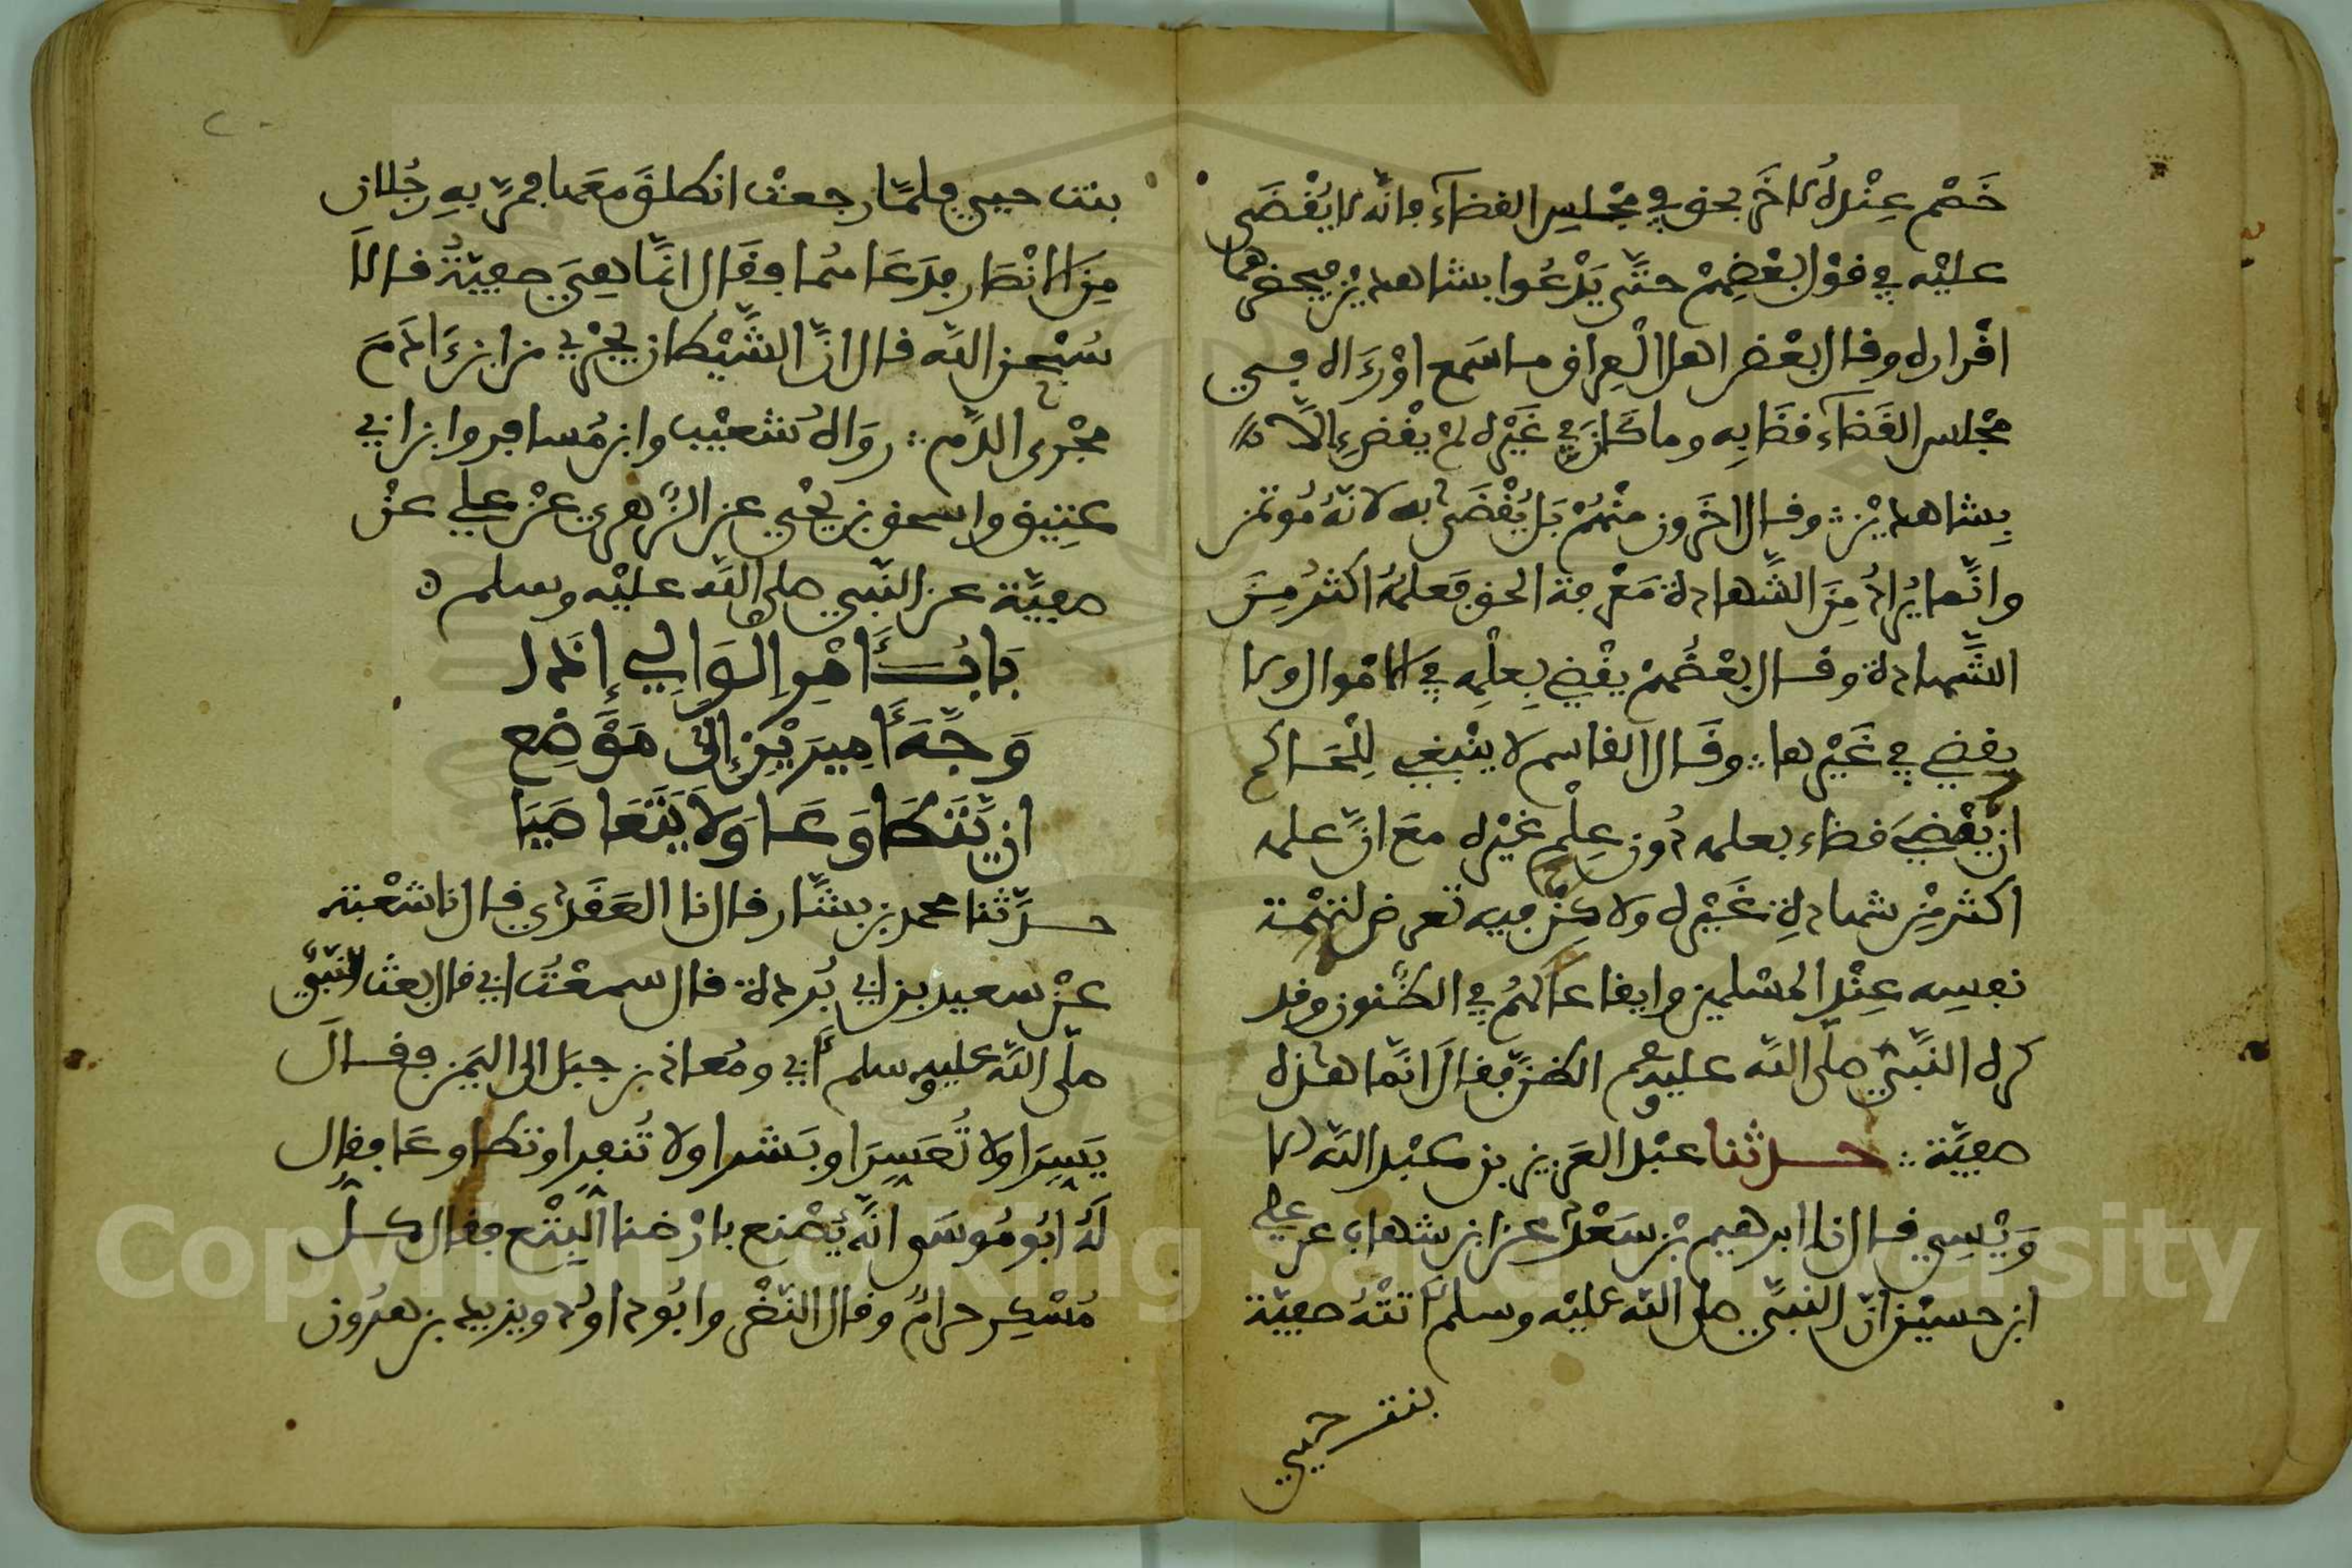 خَصْم عِنْدهُ لآخَر بحق في مجْلِس القضآء فإنّه لا يُقْضَى
عليْه في قوْل بعْضِهمْ حتّى يَدْعُوا بشاهديْن فيحضرهما
اقْراره وقال بعْض اهل الْعِراق ما سَمع اوْ رَءَاه في
مجْلس القَضَآء قضَا بِه وما كَانَ في غَيْره لمْ يقْضِ إلاّ
بِشاهديْن وقال اخَرون منْهُمْ بَل يُقْضَى به لانّهُ مُوتمن
وانّما يُرادُ مِنَ الشّهادة مَعْرفة الحق فعلمُهُ اكثرُ مِنَ
الشّهادة وقال بعْضُهمْ يقْضي بِعلْمِه في الامْوال ولا
يقضي في غَيْرها وقَال القاسم لا ينْبغي لِلْحَاكم
ان يّقْضِيَ قضاء بعلمه دُون عِلْمِ غيْره معَ انّ علمه
اكثر مِنْ شهادةِ غَيْره ولاكِنّ فيه تعرض لتهْمة
نفسِه عِنْد المسْلمين وايقاعا لهُم في الظُّنون وقد
كره النّبيّ صلّى اللّه عليه وسلم الظنّ فقالَ انّما هذه
صفيّة حدثنا عبْد العَزيز بن عبْد اللّه الا
وَيْسِي قال نا ابرهيم بْن سَعْد عن ابن شهاب عن علي
ابن حسيْن انّ النبيّ صلى اللّه عليْه وسلم اتتْهُ صفيّة
بنت حيي
بنت حيي فلمّا رجعتْ انطلقَ معَها فمرّ بهِ رجُلان
مِنَ الانْصَار فدَعَاهُما فقَال انّما هِيَ صفيّةُ قالاَ
سُبْحن اللّه قال انّ الشّيْطان يجْرِي من ابن ءَادَمَ
مجْرى الدّم روَاهُ شعيْب وابن مُسافر وابن ابي
عتِيق واسحق بن يحْيي عن الزّهرِي عنْ علي عنْ
صفيّة عن النّبي صلى اللّه عليْه وسلم
بَابُ أَمْرِ الْوَالِي إِذَا
وَجّهَ أَمِيرَيْنِ إِلَى مَوْضِع
ان يّتَطَاوَعَا وَلاَ يَتَعَاصَيَا
حدّثنا محمد بن بشّار قال نا العَقَدِي قال نا شعْبة
عنْ سعيد بن ابي بُردة قال سمعْتُ ابي قال بعثَ النّبيّ
صلّى اللّه عليه وسلم أَبي ومُعاذ بن جبَل الى اليَمن فقالَ
يَسِّرَا ولا تُعَسِّرَا وبَشّرا ولا تُنفِّرا وتطاوعَا فقال
لَهُ ابُو مُوسَى انّه يُصْنع بارْضنا الْبِتْع فقال كلّ
مُسْكِر حرامٌ وقال النّضْر وابُو داوُد ويزيد بن هرُون